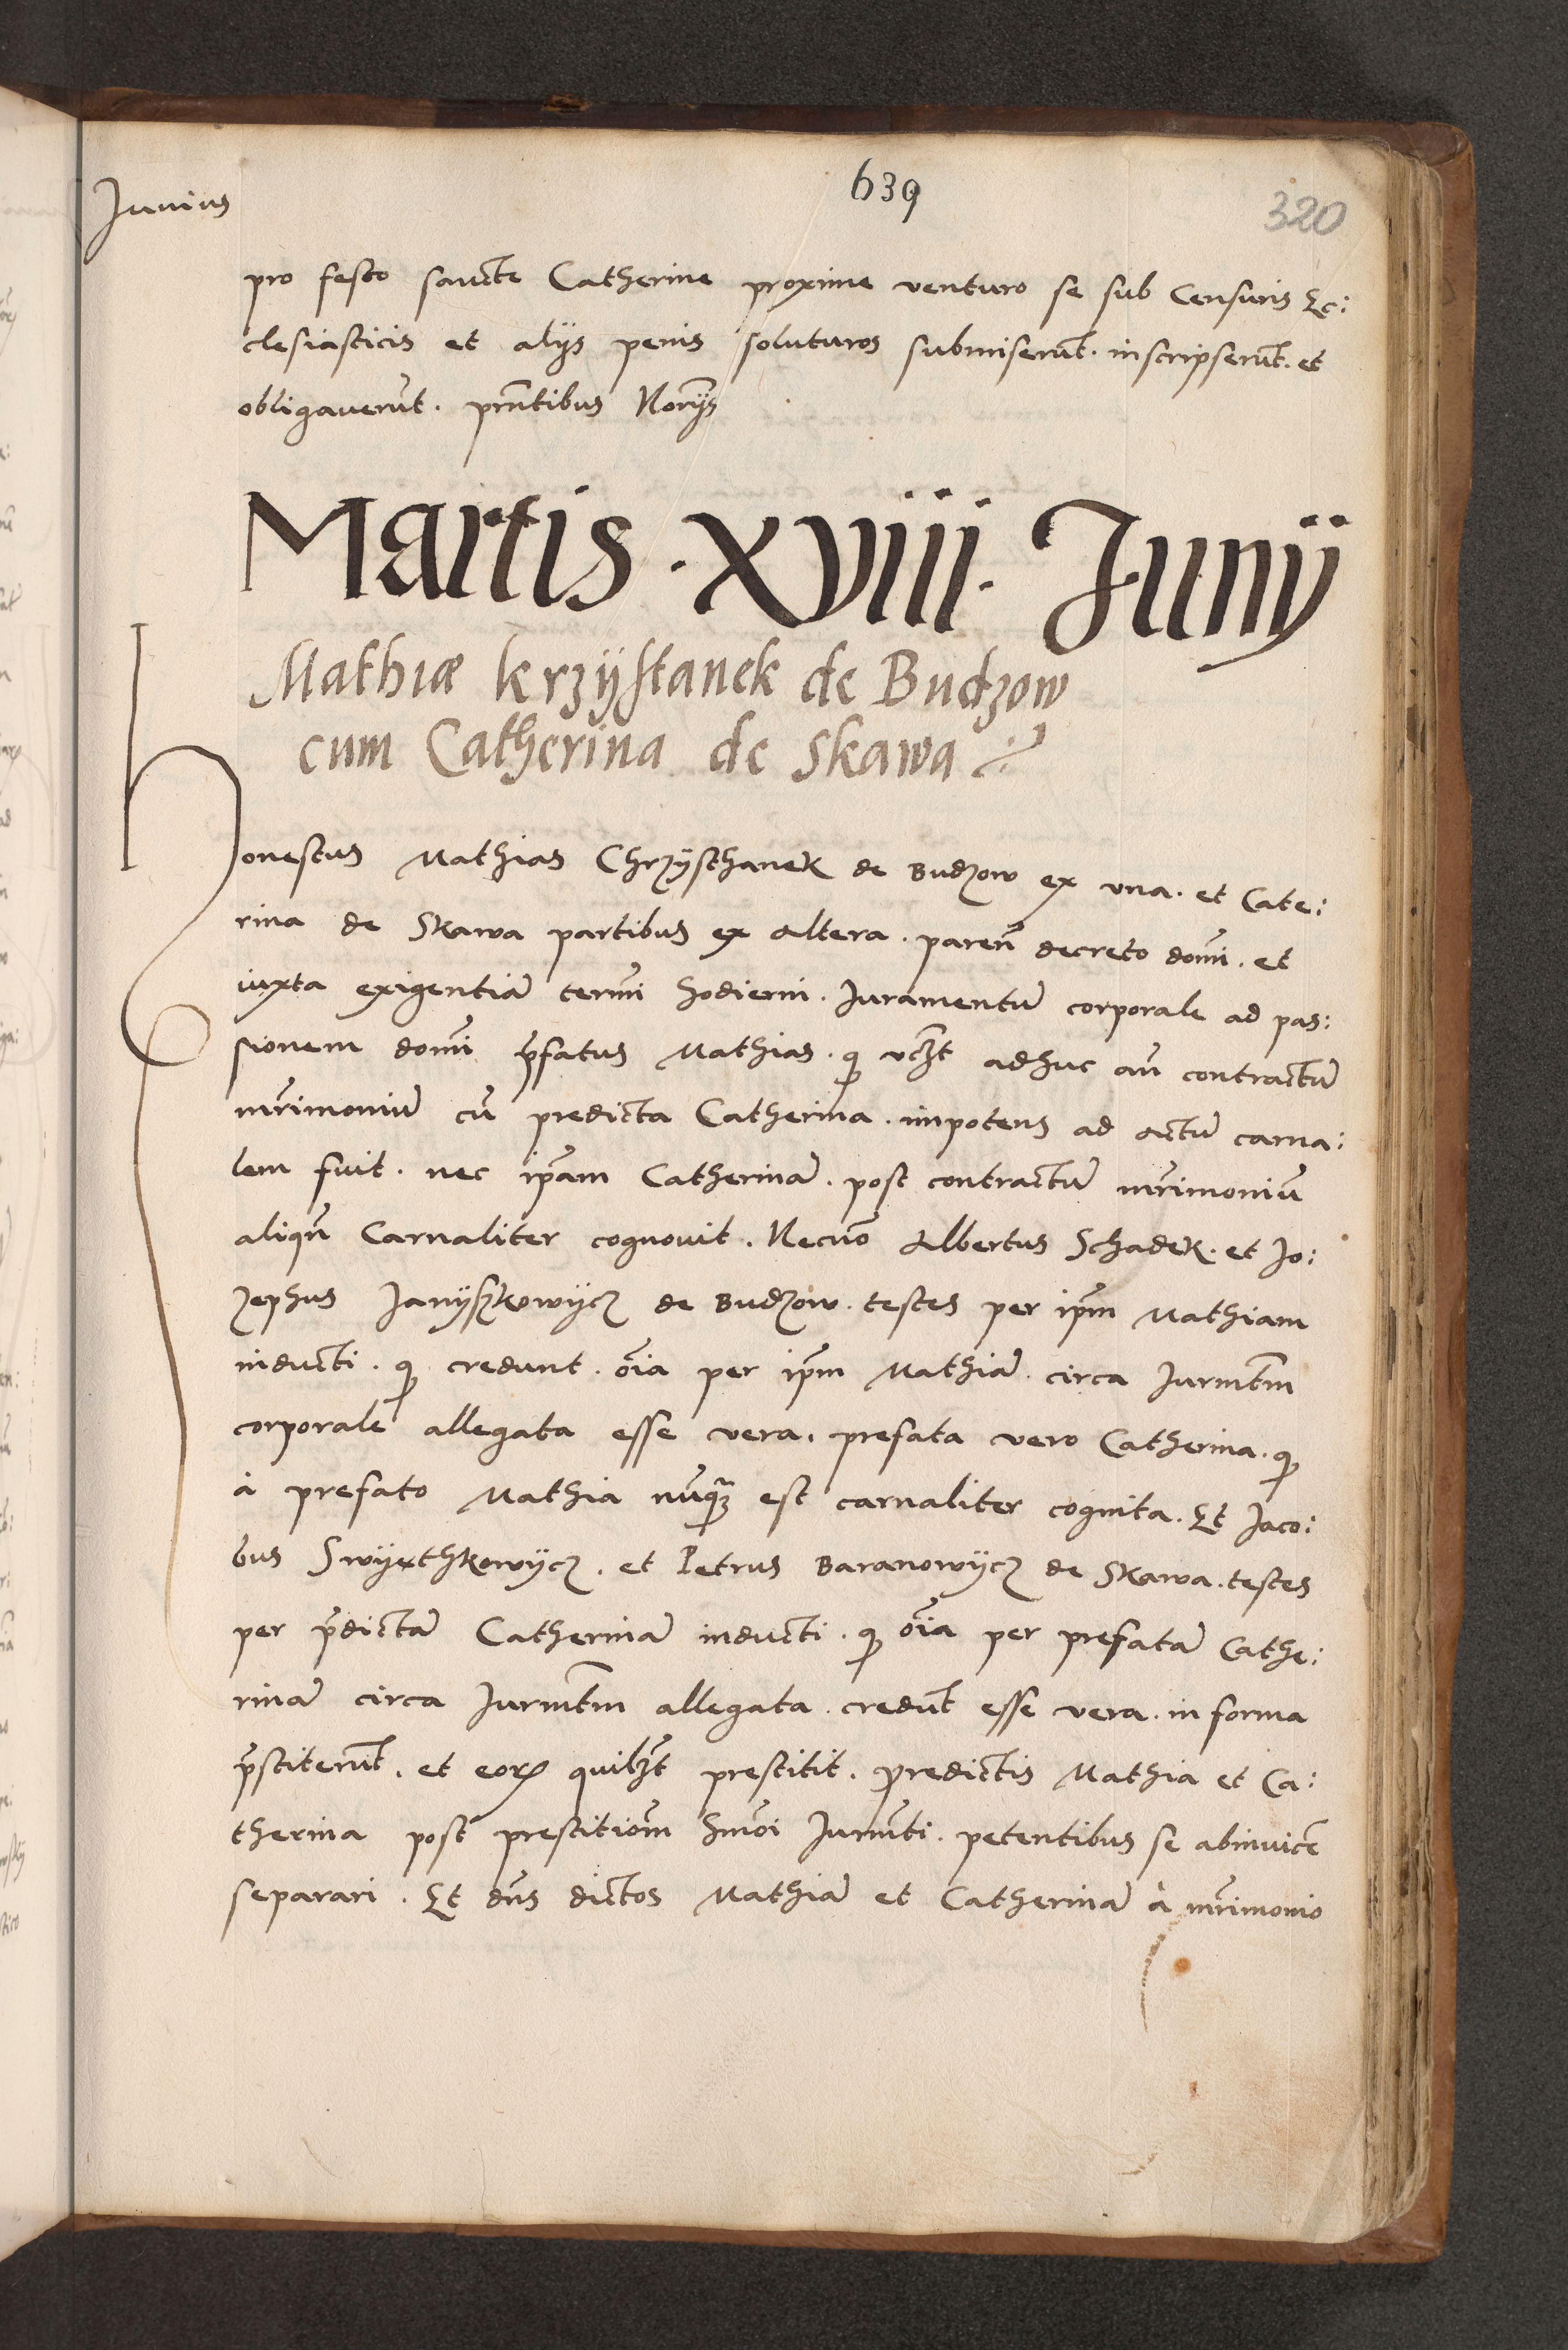 Junius
639
320
pro festo sancte Catherine proxime venturo se sub Censuris Ec:
clesiasticis et alijs penis soluturos submiserūt. inscripserūt. et
obligaverūt. pn̄tibus Norijs
Martis . xviiii . Junij
Mathiæ krzÿstanek de Budzow
cum Catherina de Skawa
Honestus Mathias Chrzÿsthanek de Budzow ex vna. et Cate:
rina de Skawa partibus ex altera. paren̄ decreto domī. et
iuxta exigentiā termī hodierni. Juramentū corporale ad pas:
sionem domī p̄fatus Mathias. ꝙ vcꝫt adhuc an̄ contractū
mr̄imoniū cū predicta Catherina. impotens ad actū carna:
lem fuit. nec ip̄am Catherinā. post contractū mr̄imoniū
aliqn̄ Carnaliter cognovit. Necnō Albertus Schadek. et Jo:
zephus Janÿszkowÿcz de Budzow. testes per ip̄m Mathiam
inducti. ꝙ credunt. oīa per ip̄m Mathiā. circa Jurmt̄m
corporale allegata esse vera. prefata vero Catherina. ꝙ
à prefato Mathia nūqꝫ est carnaliter cognita. Et Jaco:
bus Swÿrthkowÿcz. et Petrus Baranowÿcz de Skawa. testes
per p̄dictā Catherinā inducti. ꝙ oīa per prefatā Cathe:
rinā circa Jurmt̄m allegata. credūt esse vera. in forma
p̄stiterūt. et eoꝝ quilꝫt prestitit. Predictis Mathia et Ca:
therina post prestitiōm hmōi Jurmt̄i. petentibus se abinvicē
separari. Et dn̄s dictos Mathiā et Catherinā à mr̄imonio